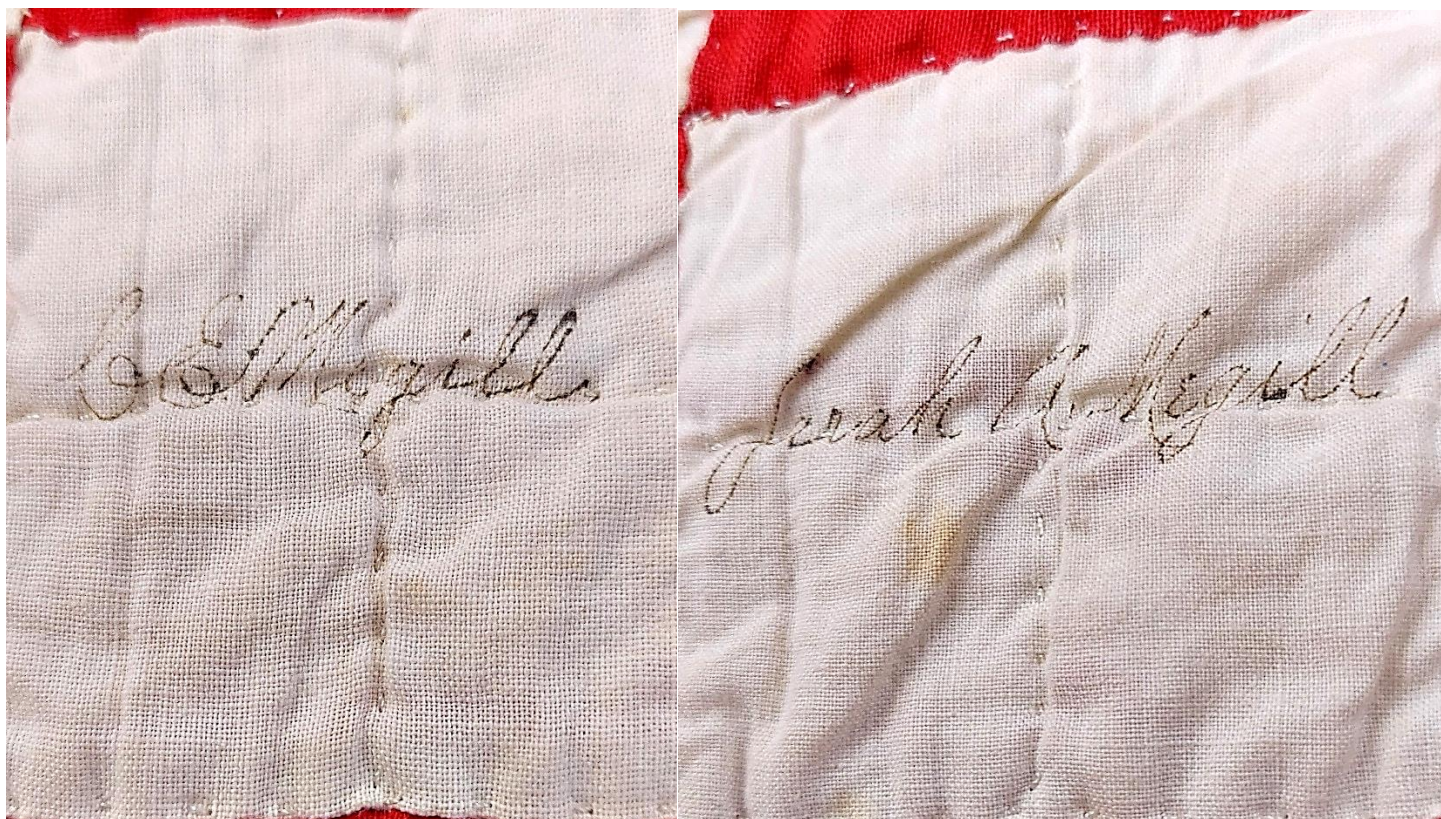 C E Megill.
Sarah A. Megill